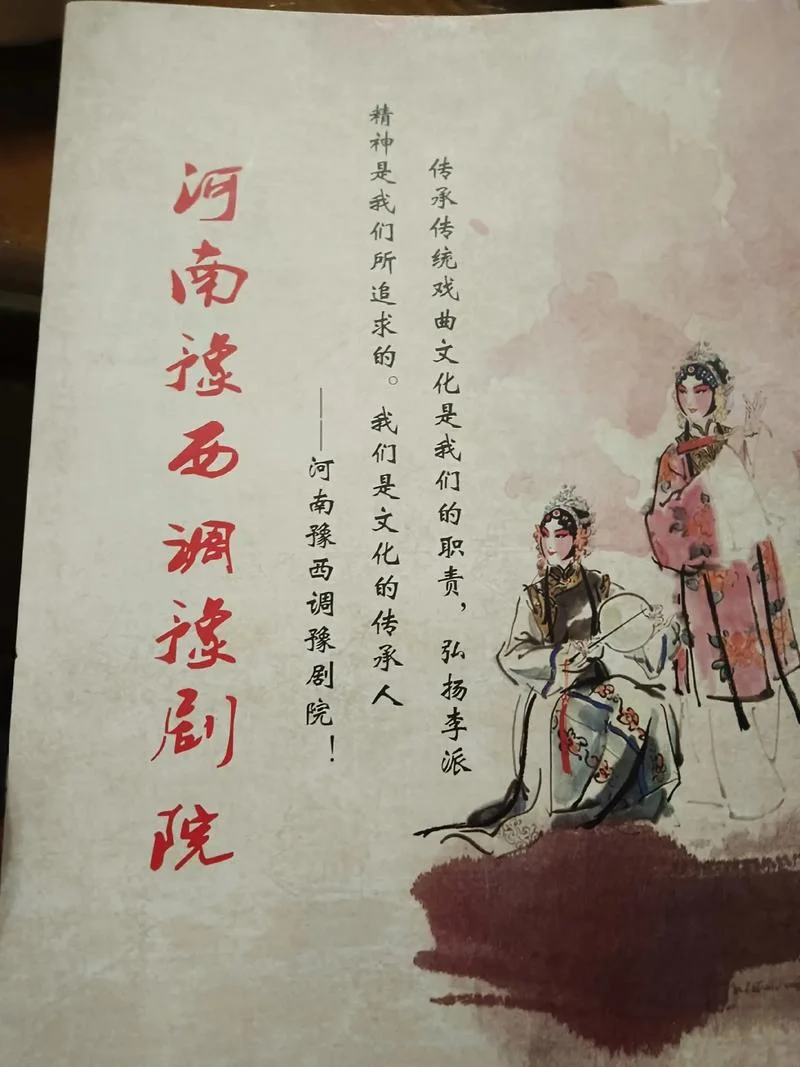 传承传统戏曲文化是我们的职责，弘扬李派
精神是我们所追求的。我们是文化的传承人
——河南豫西调豫剧院！
河南豫西调豫剧院